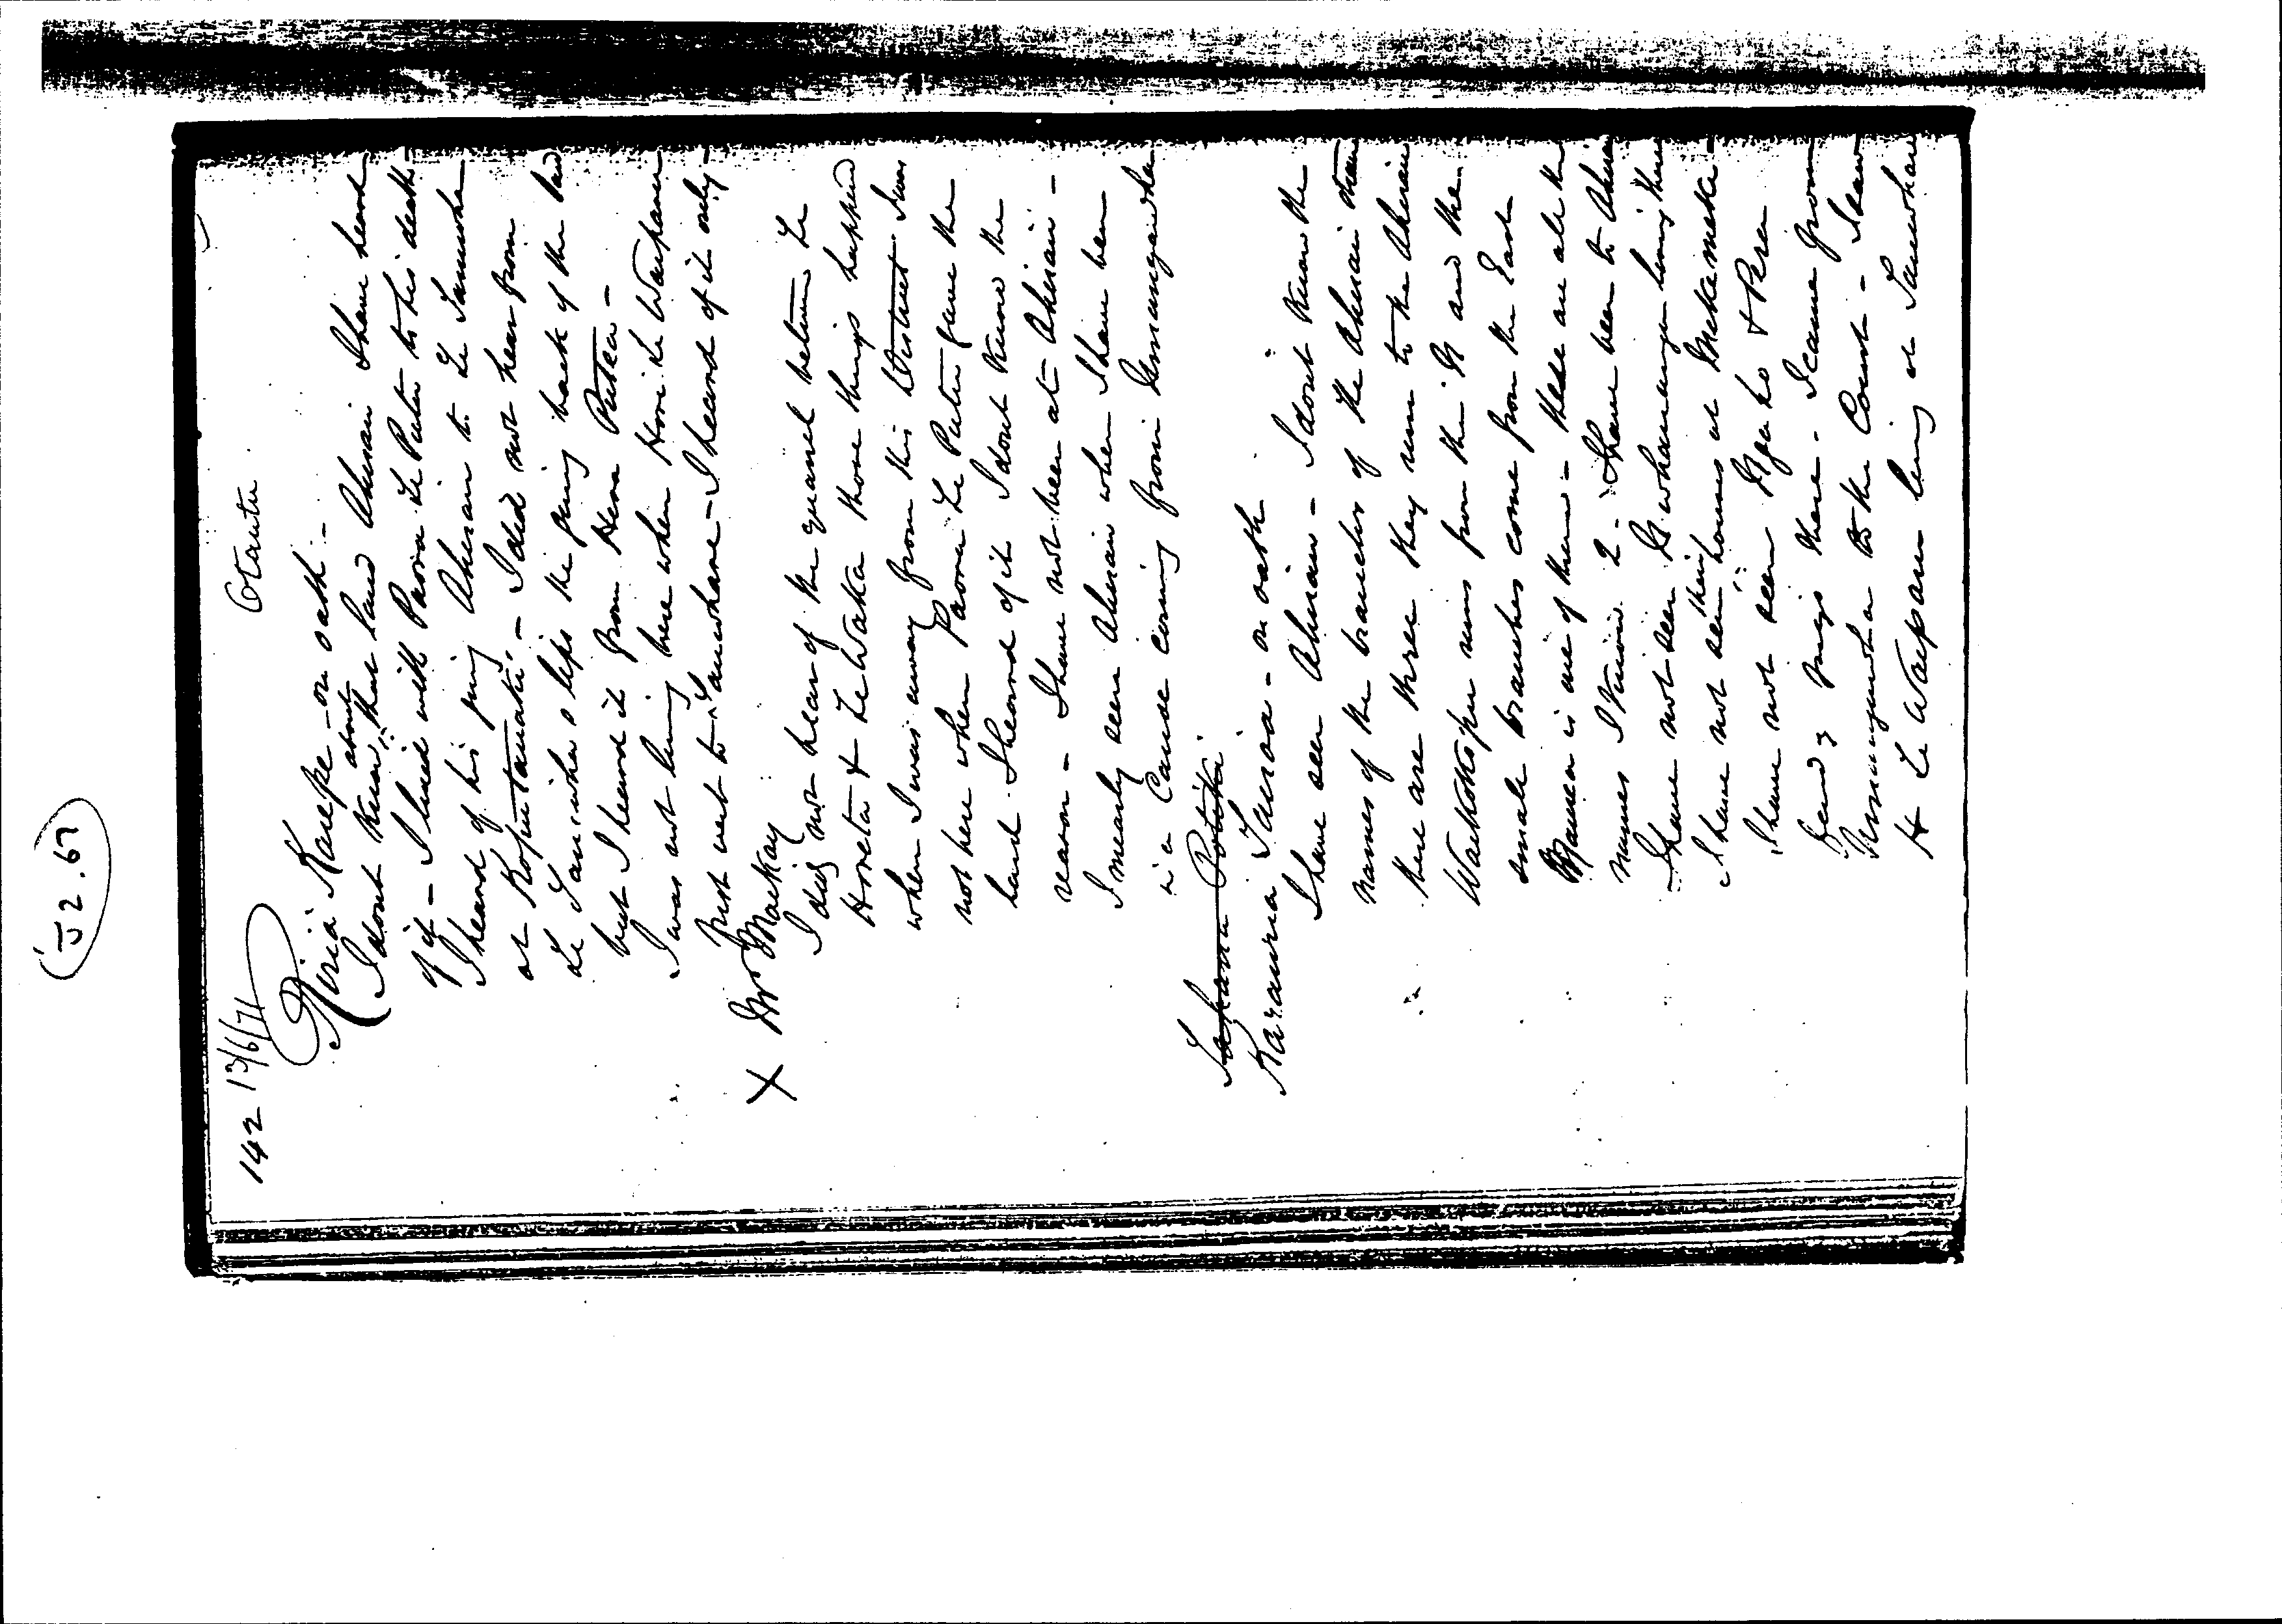 (J2.67)
142 13/6/71 Otautu
Miria Kaupe - on oath -
I dont know about that land Ahirau I have heard
of it - I lived with Paora Te Putu to his death -
I heard of his giving Ahirau to Te Tauwha
at Koputauaki. - I did not hear from
Te Tauwha's lips the giving back of the land
but I heard it from Hera Putea -
I was not living here when Hori te Waipauu
first went to Tauwhare - I heard of it only -
X Mr Mackay
I did not hear of the quarrel between Te
Horeta & Te Waka those things happened
when I was away from this District I was
not here when Paora Te Putu gave the
land I heard of it I dont know the
reason - I have not been at Ahirau -
I merely seen Ahirau when I have been
in a Canoe coming from Maungawhau

Karauria Tauroa - on oath
I have seen Ahirau - I dont know the
names of the branches of the Ahirau
there are three they run to the Ahirau
runs from the N and the
small branches come from the East
is one of them - these are all the
names I know 2 - I have been to Ahirau
I have not seen Ngawhamanga living there
I have not seen their houses at Mekemeke -
I have not seen & Pera
pigs there - I came from
to the Court - I saw
H Te Waipauu living at Tauwhare